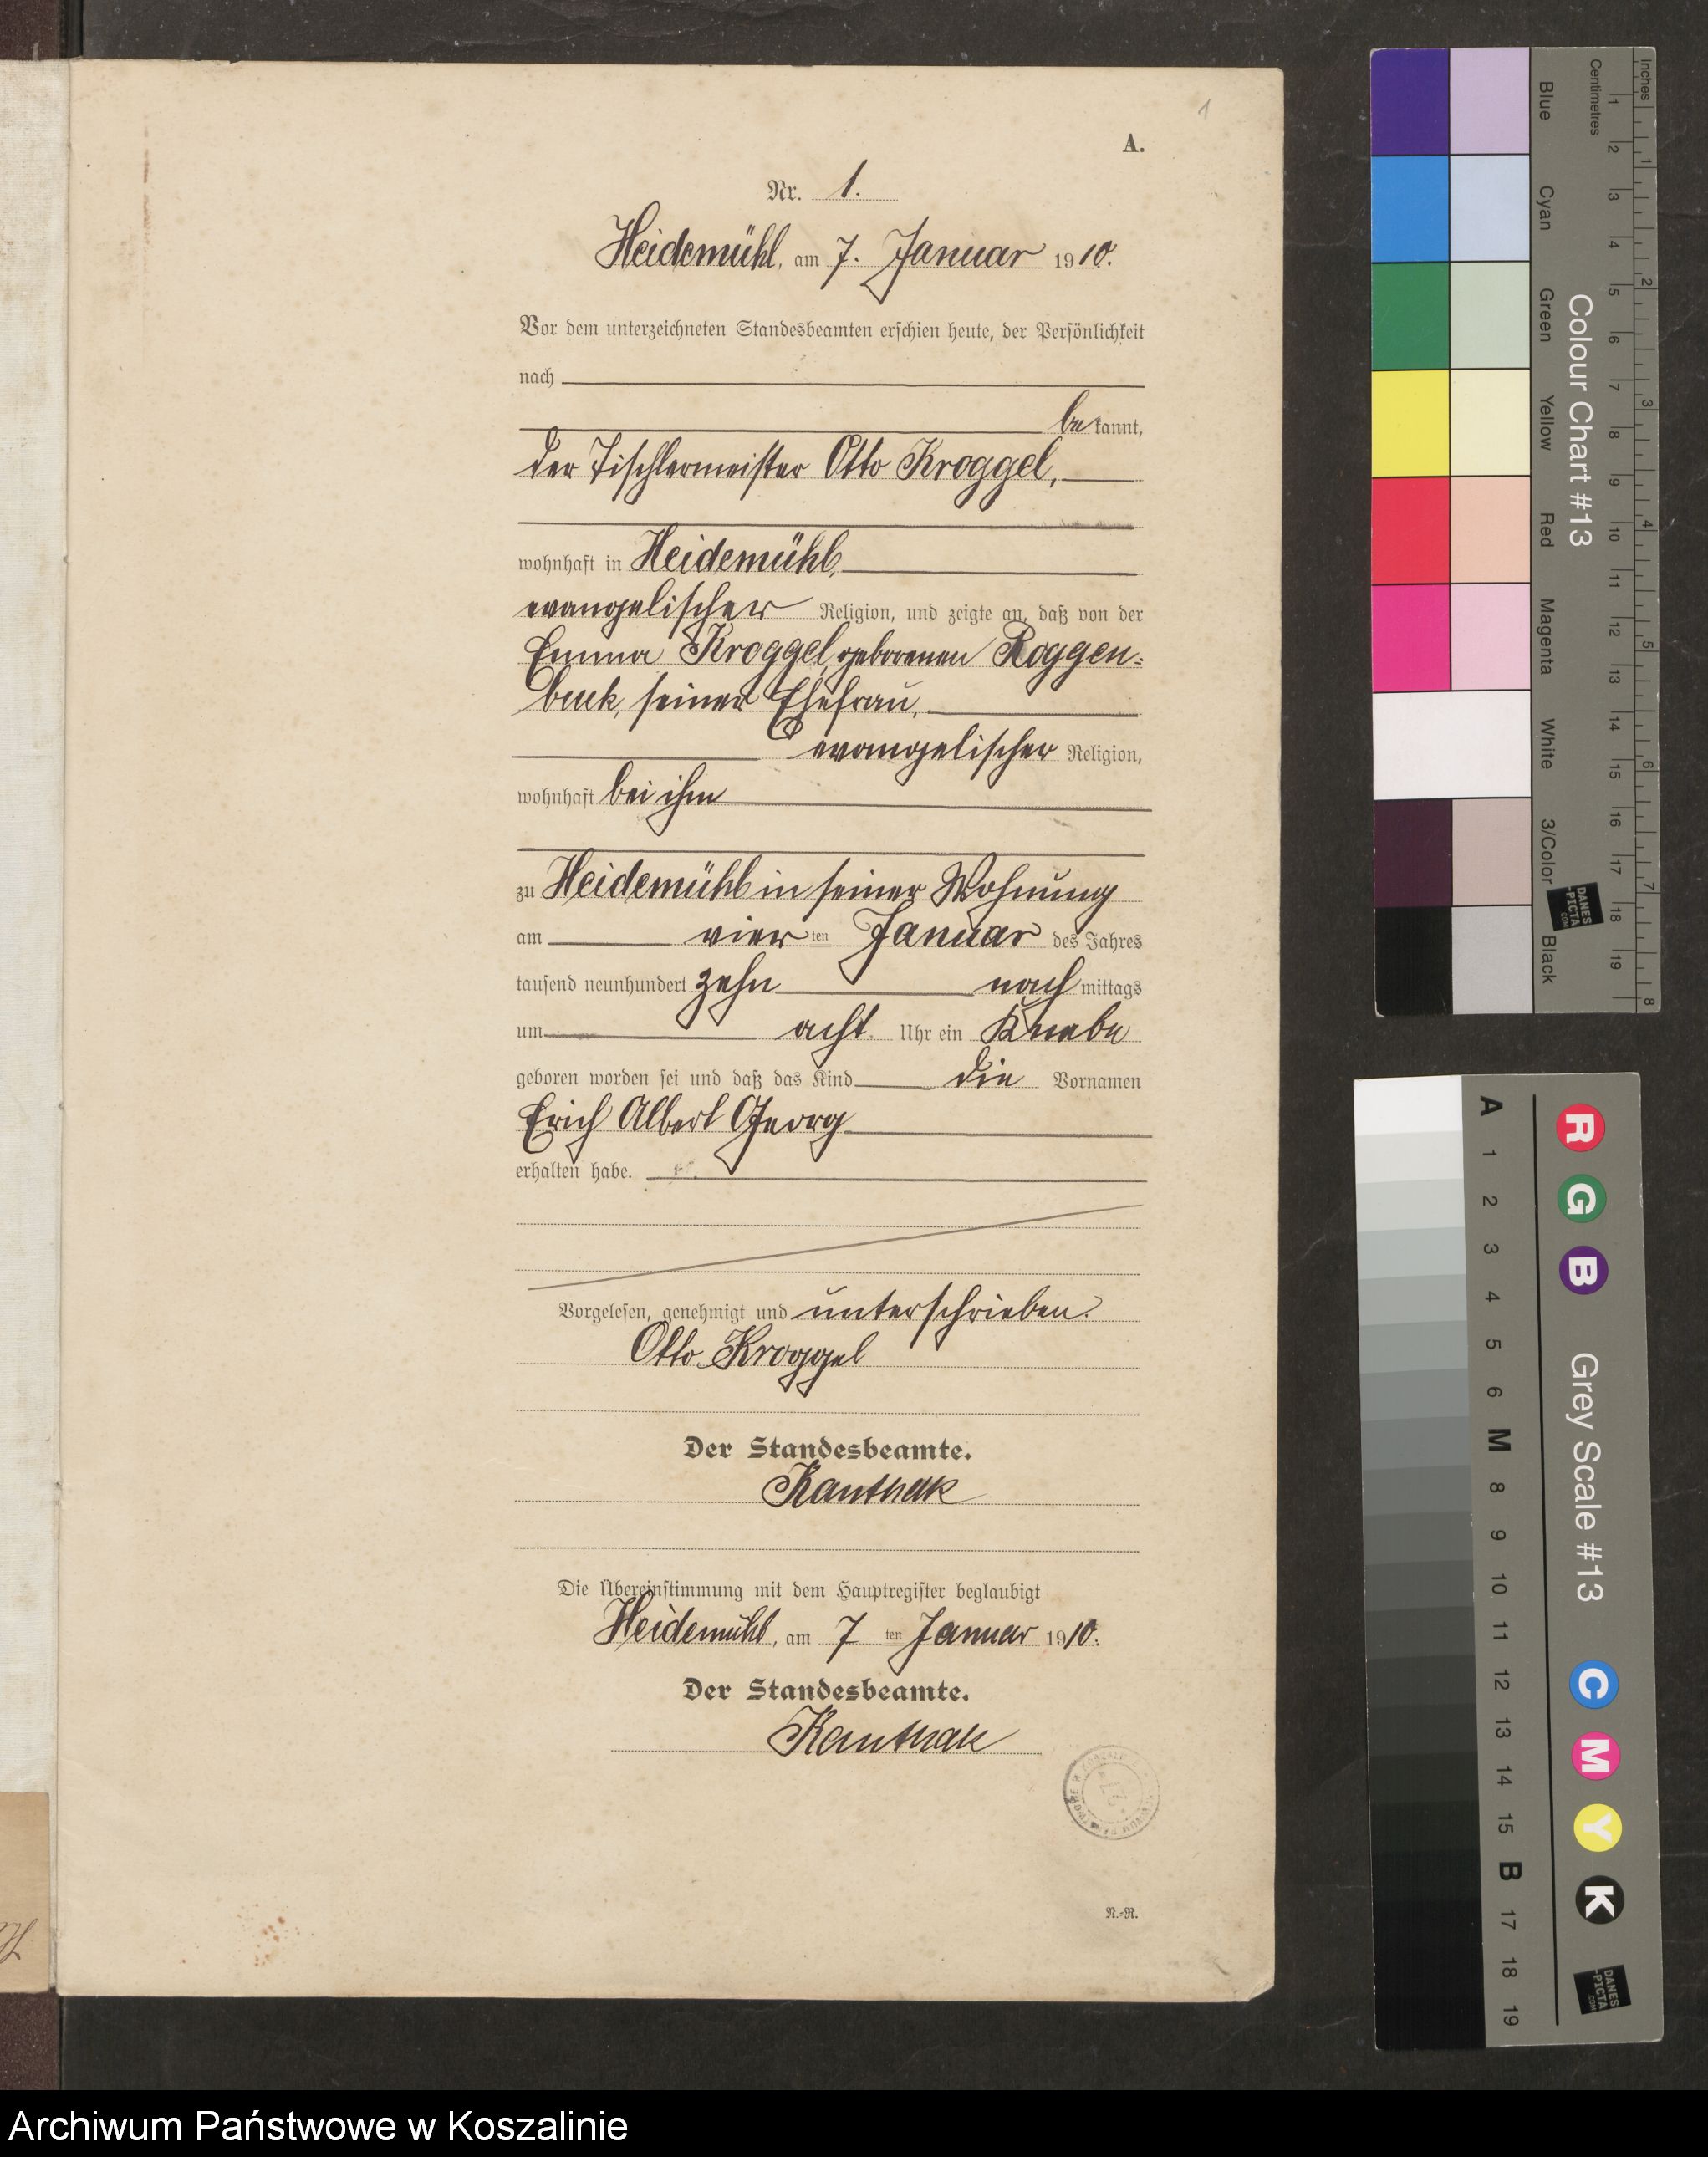 1
A.
Nr. 1.
Heidemühl, am 7. Januar 1910.
Vor dem unterzeichneten Standesbeamten erschien heute, der Persönlichkeit
nach
bekannt,
der Tischlermeister Otto Kroggel,
wohnhaft in Heidemühl,
evangelischer Religion, und zeigte an, daß von der
Emma Kroggel, geborenen Roggen-
buck, seiner Ehefrau,
evangelischer Religion,
wohnhaft bei ihm
zu Heidemühl in seiner Wohnung
am vierten Januar des Jahres
tausend neunhundert zehn nachmittags
um acht Uhr ein Knabe
geboren worden sei und daß das Kind die Vornamen
Erich Albert Georg
erhalten habe.
Vorgelesen, genehmigt und unterschrieben.
Otto Kroggel
Der Standesbeamte.
Kanthak
Die Übereinstimmung mit dem Hauptregister beglaubigt
Heidemühl, am 7ten Januar 1910.
Der Standesbeamte.
Kanthak
N.=R.
Inches
Centimetres
1 2 3 4 5 6 7 8 9 10 11 12 13 14 15 16 17 18 19
1 2 3 4 5 6 7 8
Colour Chart #13
Blue Cyan Green Yellow Red Magenta White 3/Color Black
DANES
-PICTA
.COM
A 1 2 3 4 5 6 M 8 9 10 11 12 13 14 15 B 17 18 19
Grey Scale #13
R G B C M Y K
DANES
-PICTA
.COM
Archiwum Państwowe w Koszalinie